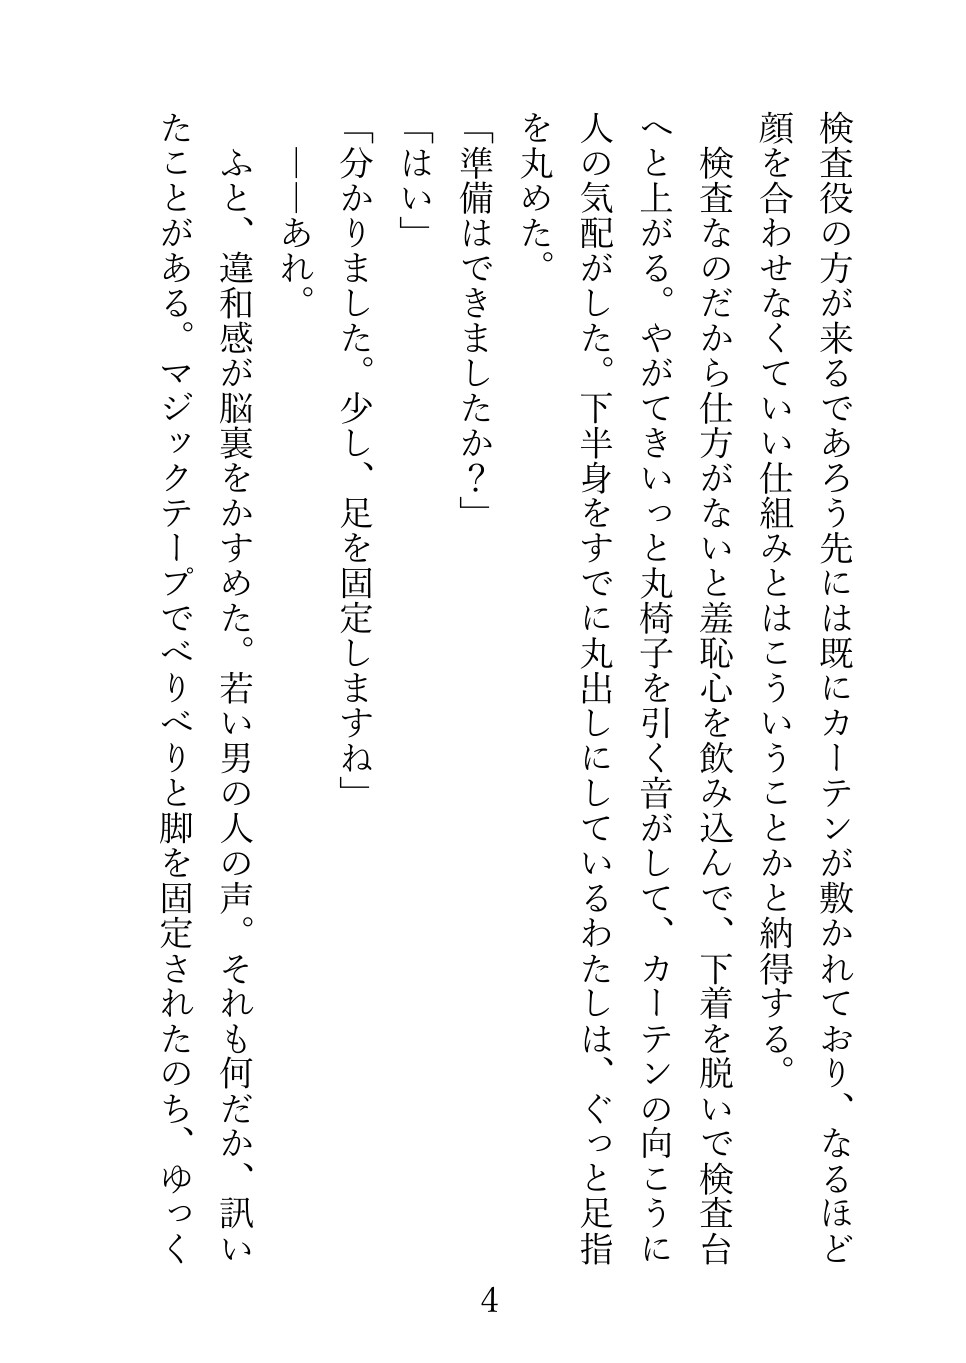 検査役の方が来るであろう先には既にカーテンが敷かれており、なるほど
顔を合わせなくていい仕組みとはこういうことかと納得する。
　検査なのだから仕方がないと羞恥心を飲み込んで、下着を脱いで検査台
へと上がる。やがてきいっと丸椅子を引く音がして、カーテンの向こうに
人の気配がした。下半身をすでに丸出しにしているわたしは、ぐっと足指
を丸めた。
「準備はできましたか？」
「はい」
「分かりました。少し、足を固定しますね」
　――あれ。
　ふと、違和感が脳裏をかすめた。若い男の人の声。それも何だか、訊い
たことがある。マジックテープでべりべりと脚を固定されたのち、ゆっく
4